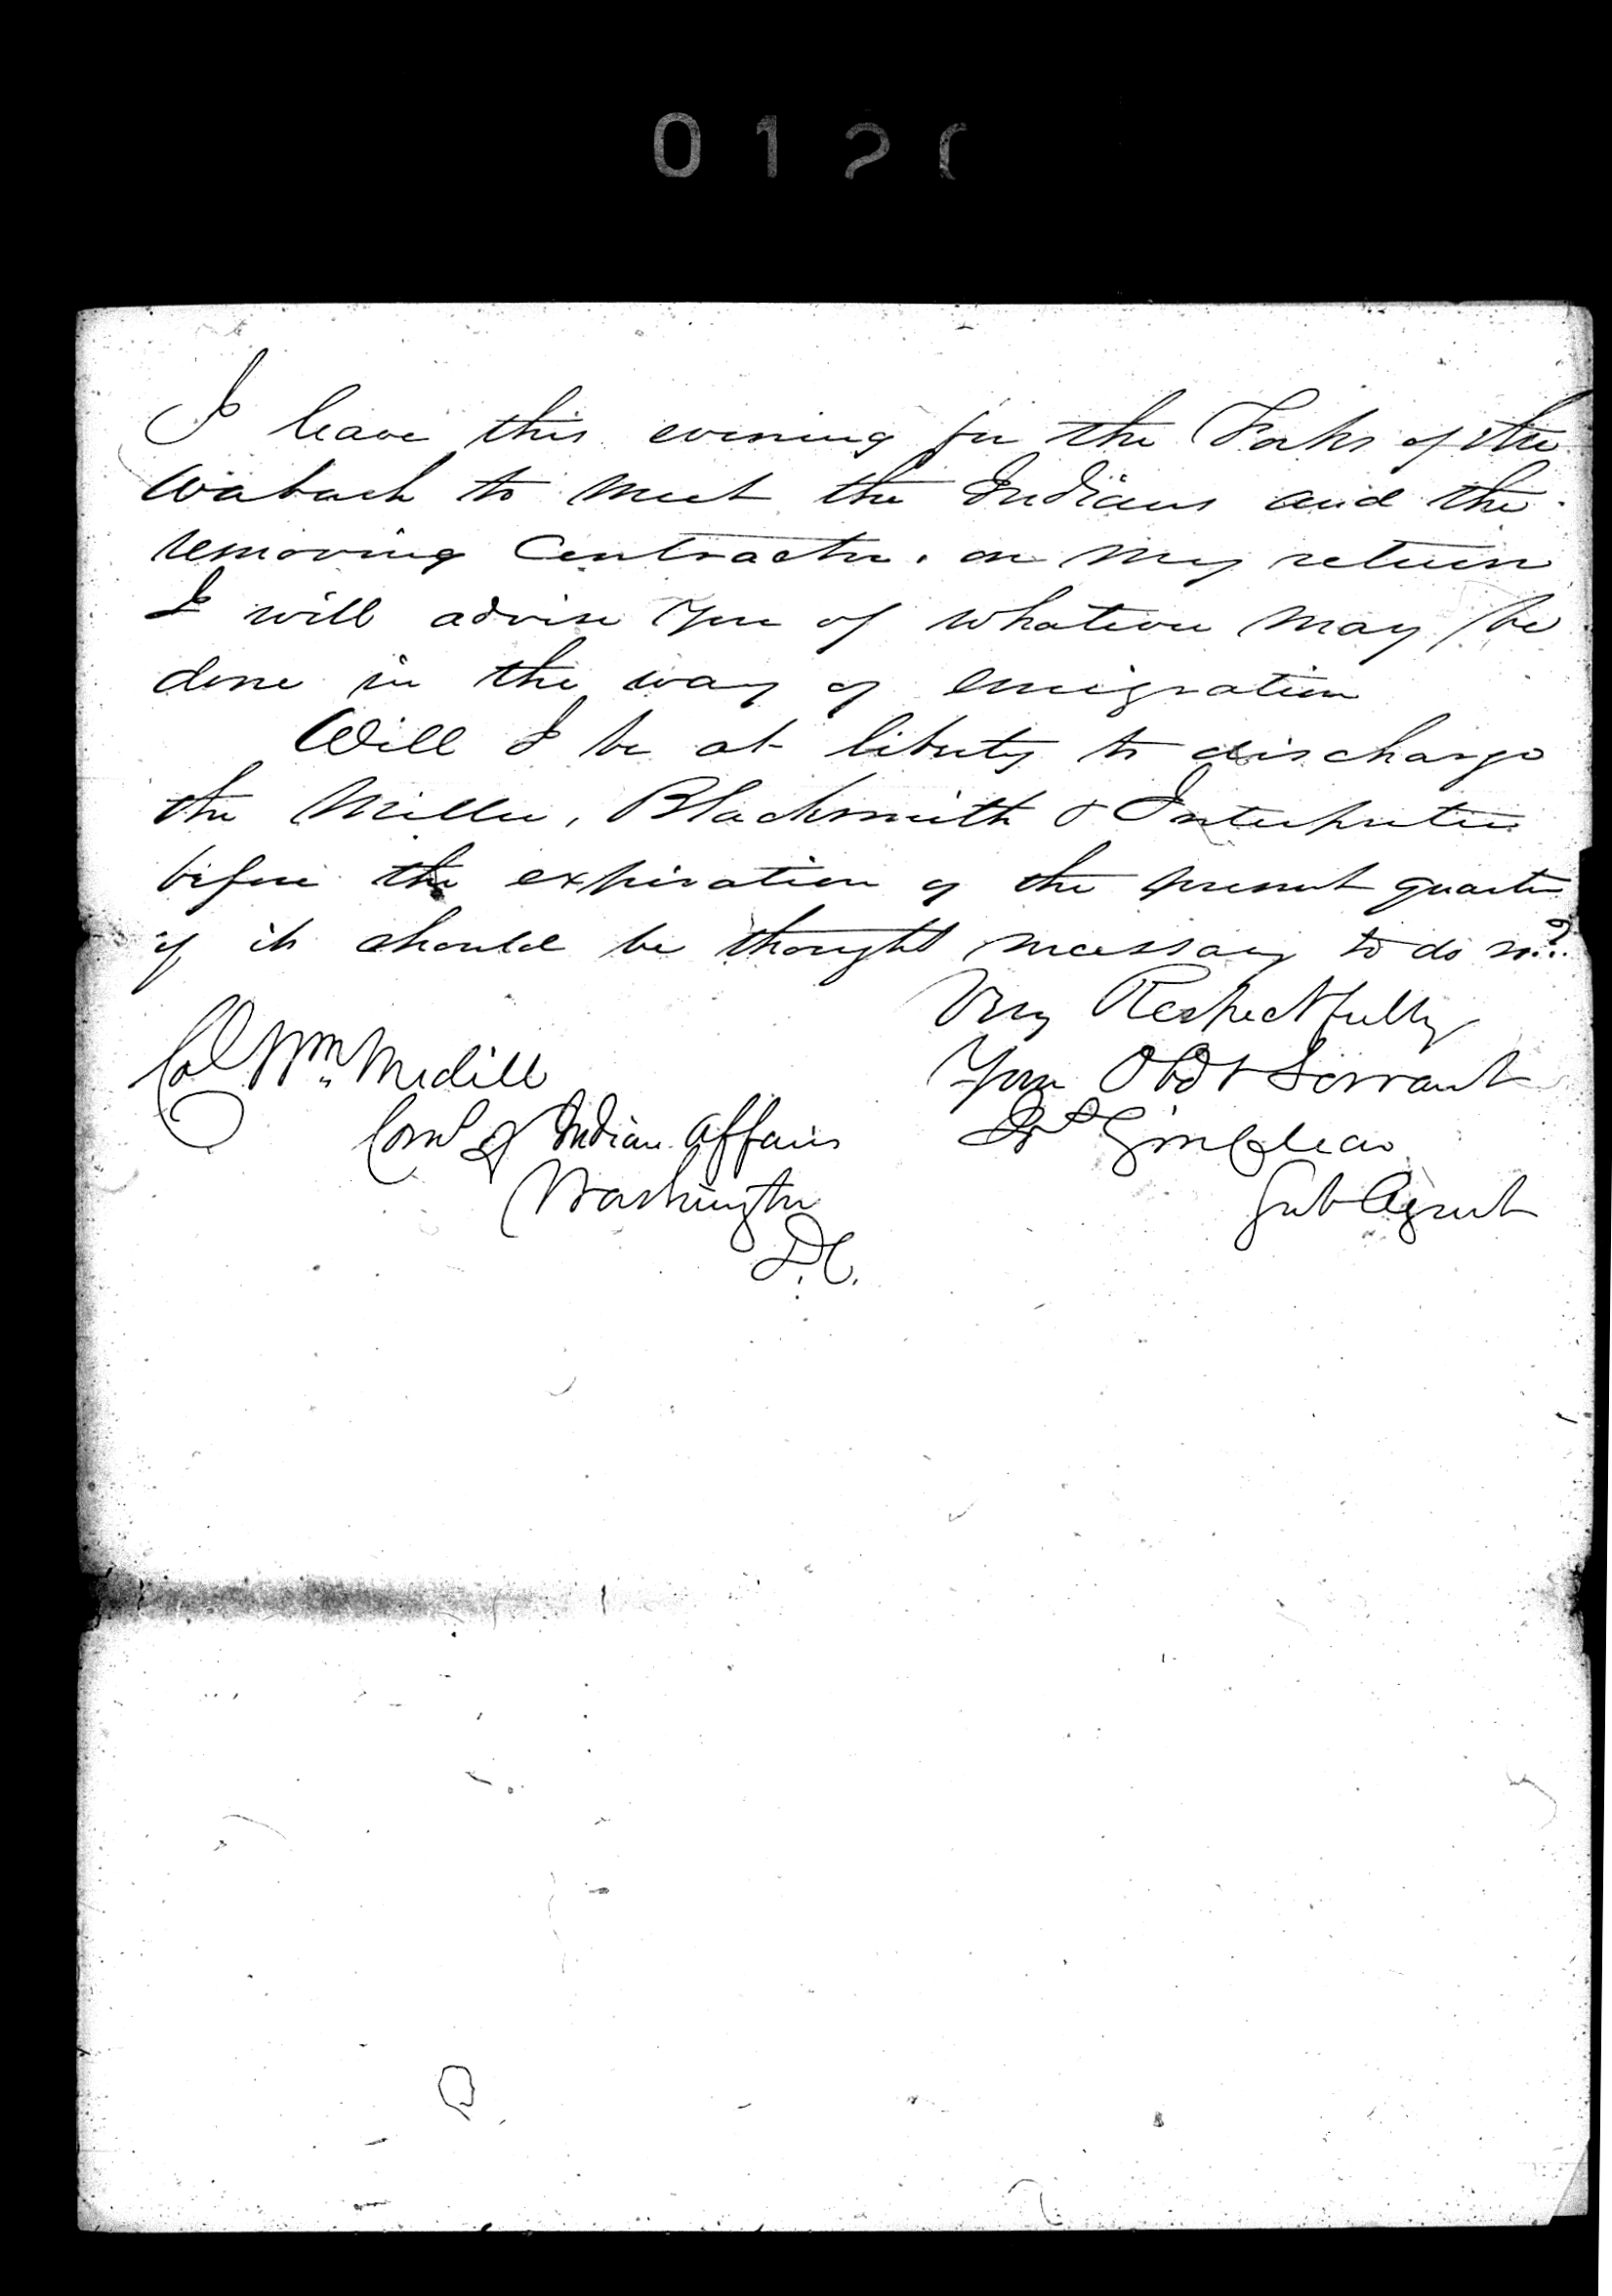 012
I leave this evening for the Forks of the
Wabash to meet the Indians and the
removing Contractor. on my return
I will advise you of whatever may be
done in the way of emigration
Will I be at liberty to discharge
the Miller, Blacksmith & Interpreter
before the expiration of the present quarter
if it should be thought necessary to do so?
Very Respectfully
Col Wm. Medill
Your Obdt Servant
Com of Indian Affairs
Sinclear
Washington
Sub Agent
D.C.